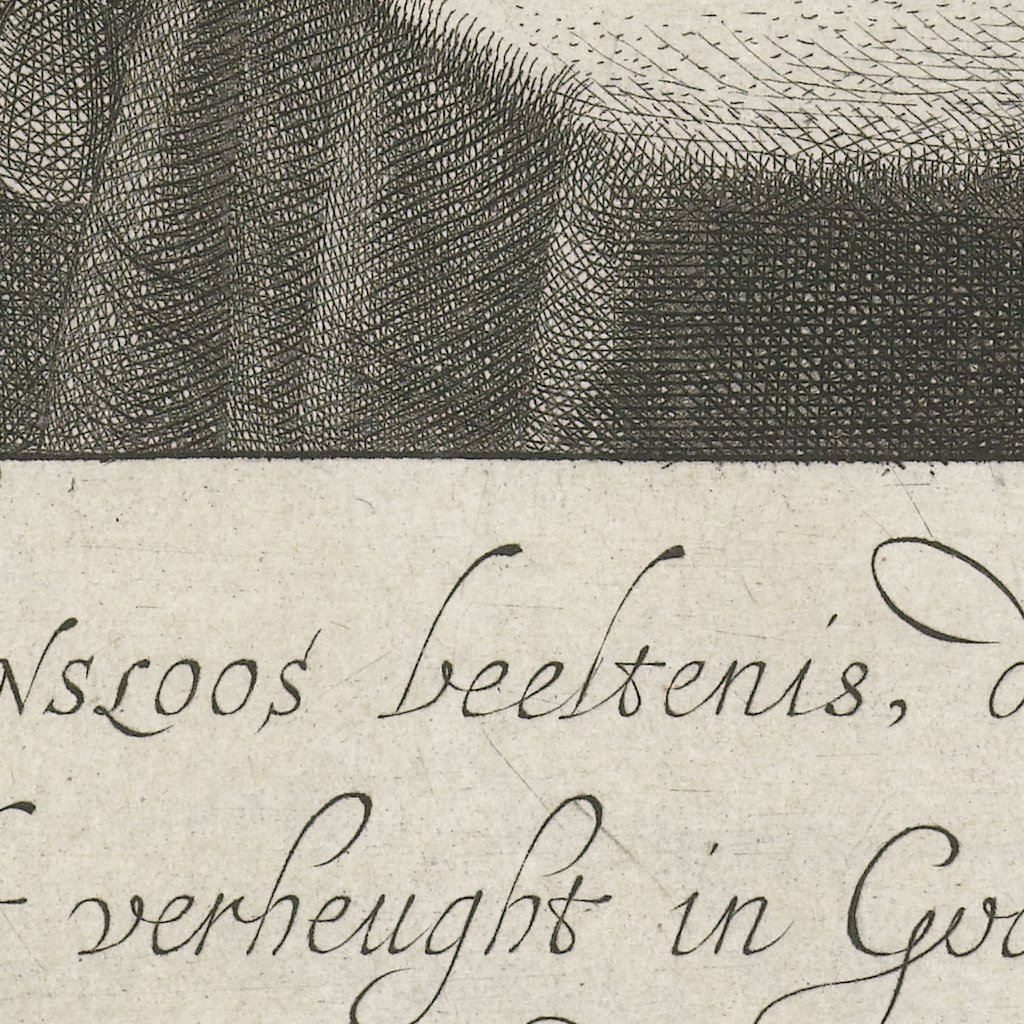 NSLOOS beeltenis,
verheught in